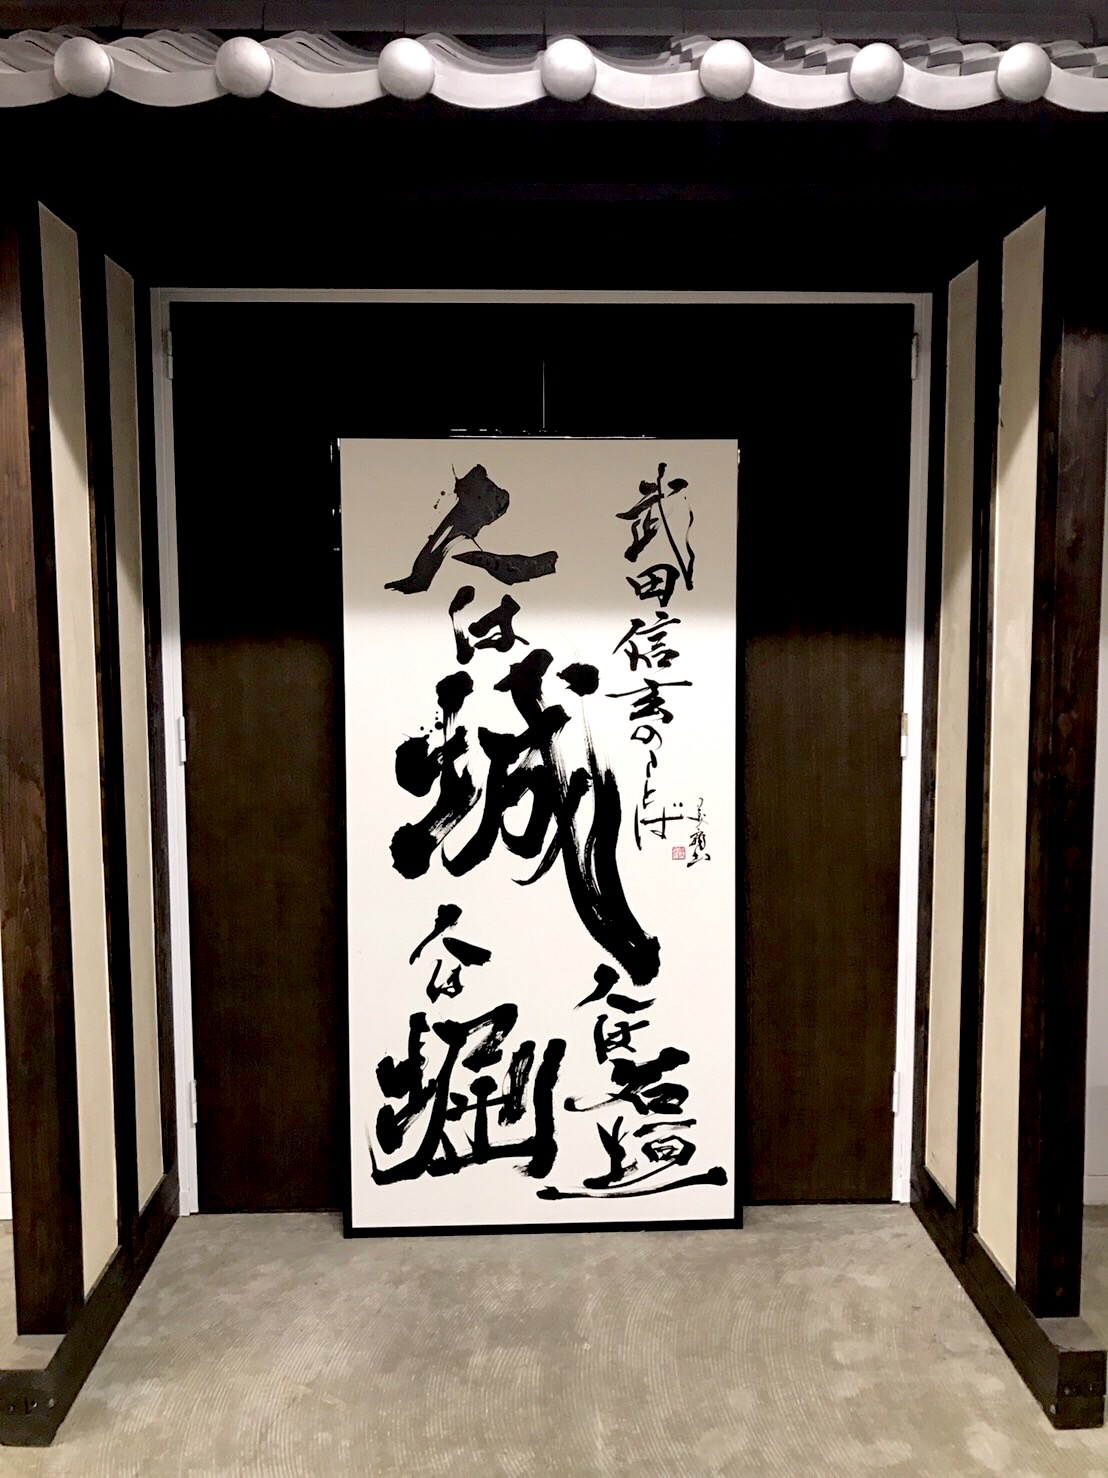 武田信玄のことば
人は城
人は石垣
人は堀